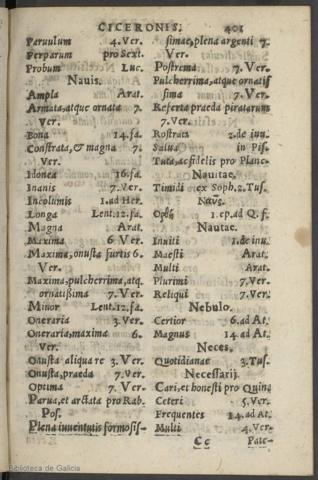 CICERONIS. 401
Paruulum 4. Ver.
Perparum pro Sext.
Probum Luc.
Nauis.
Ampla Arat.
Armata, atque ornata 7.
Ver.
Bona 14. fa.
Constrata, & magna 7.
Ver.
Idonea 16. fa.
Inanis 7. Ver.
Incolumis 1. ad Her.
Longa Lent. 12. fa.
Magna Arat.
Maxima 6 Ver.
Maxima, onusta furtis 6.
Ver.
Maxima, pulcherrima, atq.
ornatissima 7. Ver.
Minor Lent. 12. fa.
Oneraria 3. Ver.
Oneraria, maxima 6.
Ver.
Onusta aliqua re 3. Ver.
Onusta, praeda 7. Ver.
Optima 7. Ver.
Parua, et arctata pro Rab.
Pos.
Plena iuuentutis formosis-
simae, plena argenti 7.
Ver.
Postrema 7. Ver.
Pulcherrima, atque ornatis
sima 7. Ver.
Referta praeda piratarum
7. Ver.
Rostrata 2. de inu.
Salua in Pis.
Tuta, ac fidelis pro Planc.
Nauitae.
Timidi ex Soph. 2. Tus.
1. ep. ad Q. f.
Nautae.
Inuiti 1. de inu.
Maesti Arat.
Multi Arat.
Plurimi 7. Ver.
Reliqui 7. Ver.
Nebulo.
Certior 6. ad At.
Magnus 14. ad At.
Neces.
Quotidianae 3. Tus.
Necessarij.
Cari, et honesti pro Quin.
Ceteri 5. Ver.
Frequentes 14. ad At.
Multi 4. Ver.
Cc Pate-
Biblioteca de Galicia